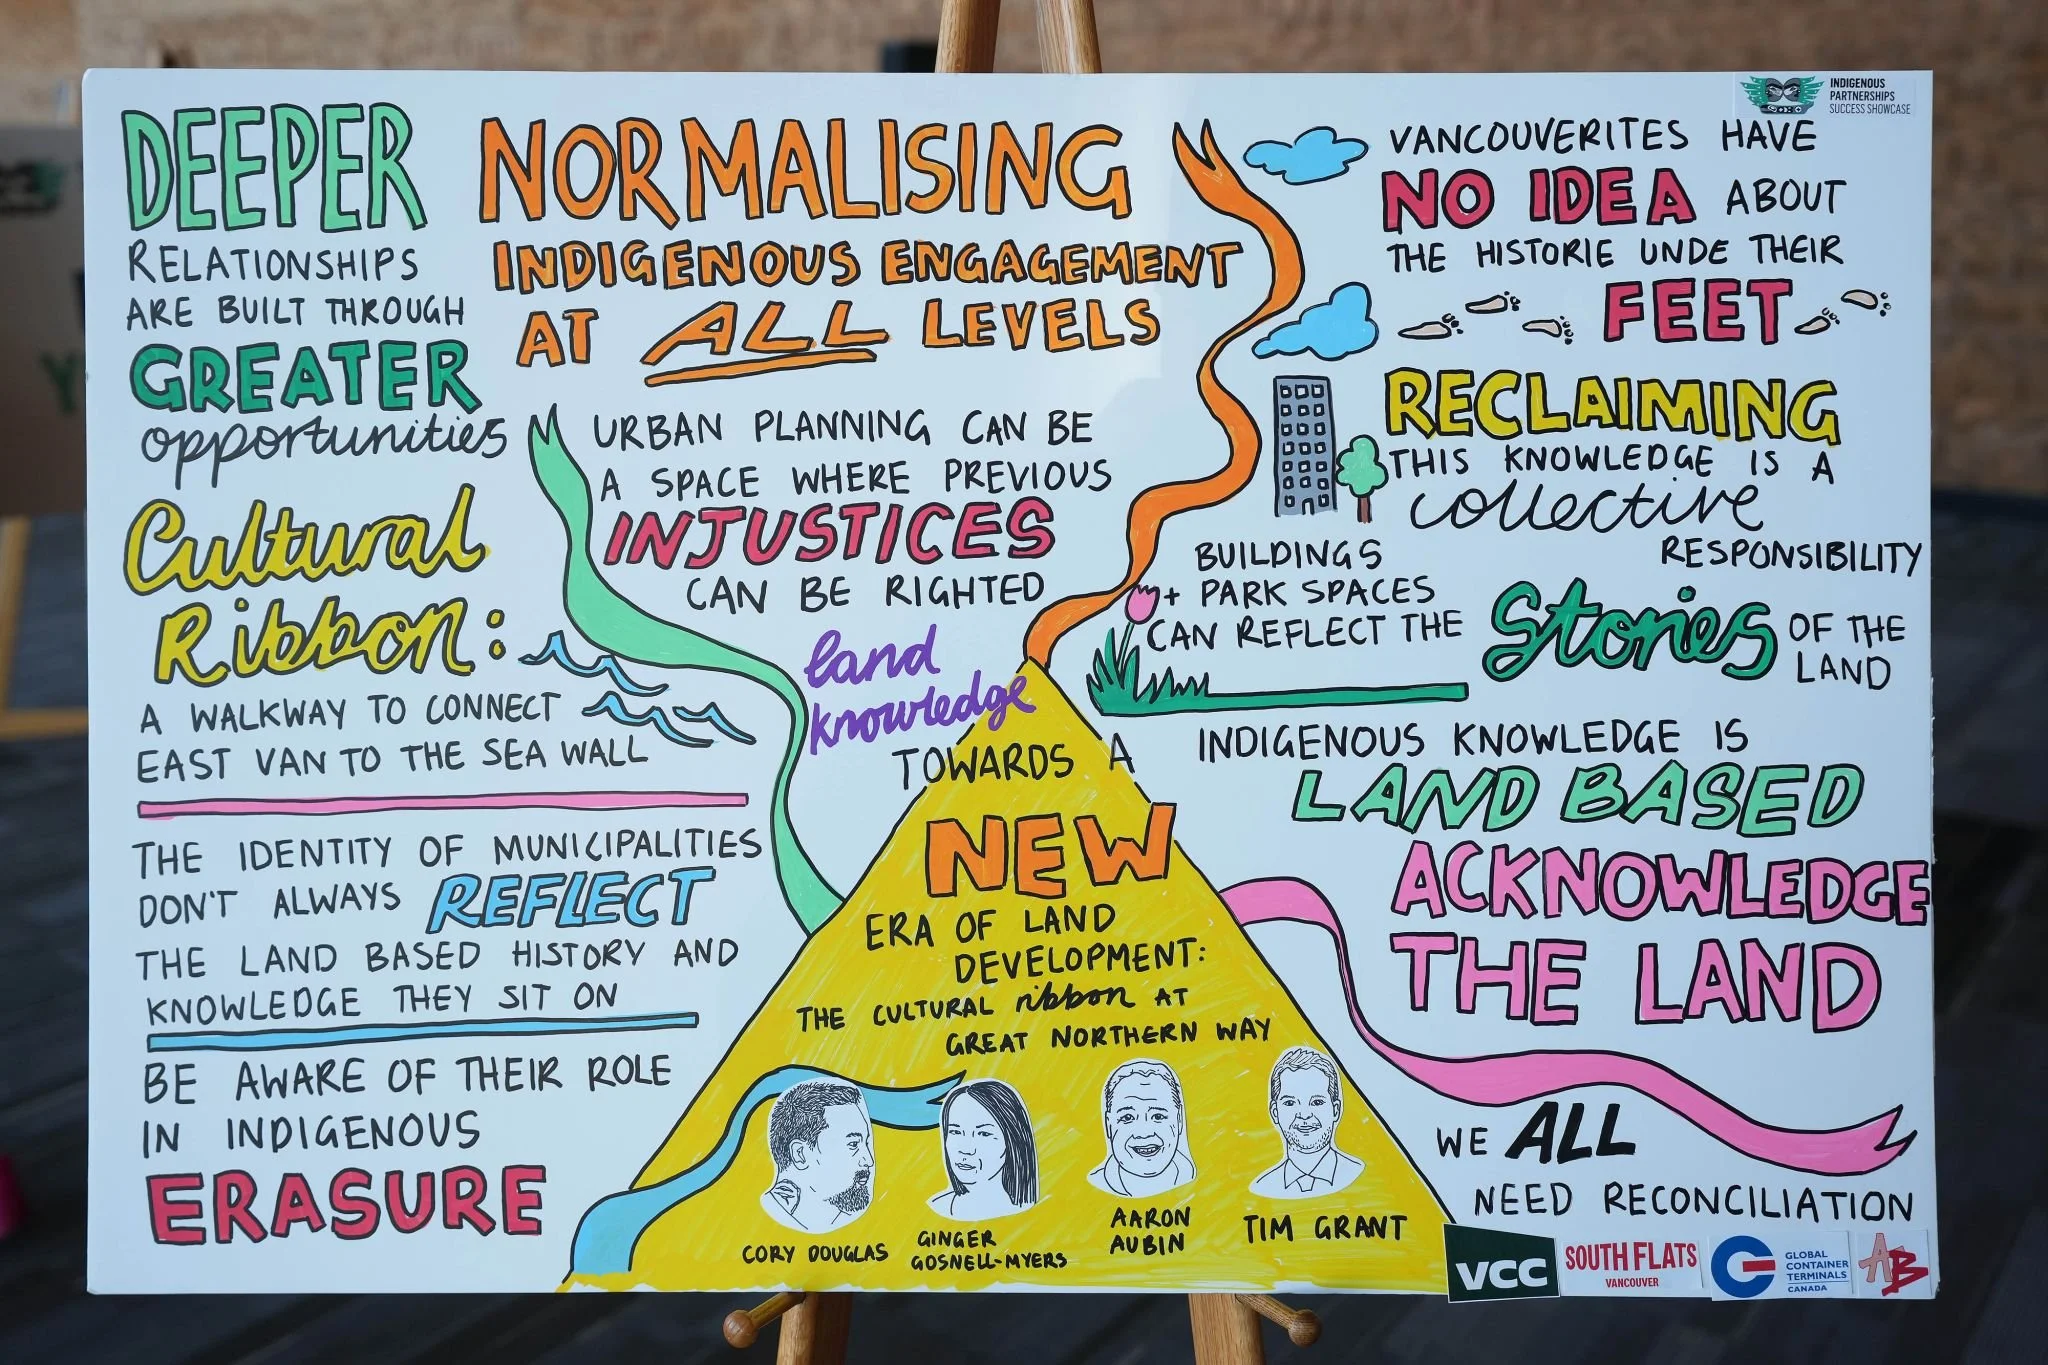 DEEPER
RELATIONSHIPS
ARE BUILT THROUGH
GREATER
opportunities
Cultural
Ribbon:
A WALKWAY TO CONNECT
EAST VAN TO THE SEA WALL
THE IDENTITY OF MUNICIPALITIES
DON'T ALWAYS REFLECT
THE LAND BASED HISTORY AND
KNOWLEDGE THEY SIT ON
BE AWARE OF THEIR ROLE
IN INDIGENOUS
ERASURE
NORMALISING
INDIGENOUS ENGAGEMENT
AT ALL LEVELS
URBAN PLANNING CAN BE
A SPACE WHERE PREVIOUS
INJUSTICES
CAN BE RIGHTED
land
knowledge
TOWARDS A
NEW
ERA OF LAND
DEVELOPMENT:
THE CULTURAL ribbon AT
GREAT NORTHERN WAY
CORY DOUGLAS
GINGER
GOSNELL-MYERS
AARON
AUBIN
TIM GRANT
INDIGENOUS
PARTNERSHIPS
SUCCESS SHOWCASE
VANCOUVERITES HAVE
NO IDEA ABOUT
THE HISTORIE UNDE THEIR
FEET
RECLAIMING
THIS KNOWLEDGE IS A
collective
RESPONSIBILITY
BUILDINGS
+ PARK SPACES
CAN REFLECT THE
Stories OF THE
LAND
INDIGENOUS KNOWLEDGE IS
LAND BASED
ACKNOWLEDGE
THE LAND
WE ALL
NEED RECONCILIATION
VCC
SOUTH FLATS
VANCOUVER
GLOBAL
CONTAINER
TERMINALS
CANADA
AB